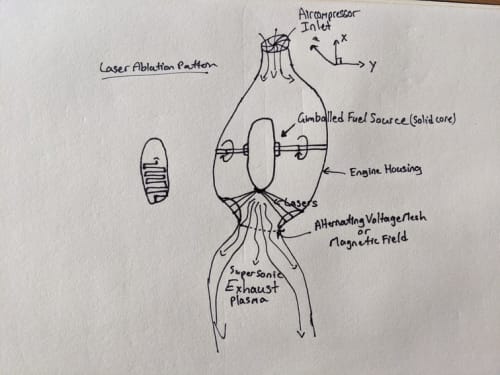 Aircompressor
Inlet
Laser Ablation Pattern
x
y
Gimballed Fuel Source (Solid core)
Engine Housing
Lasers
Alternating Voltage Mesh
or
Magnetic Field
Supersonic
Exhaust
Plasma